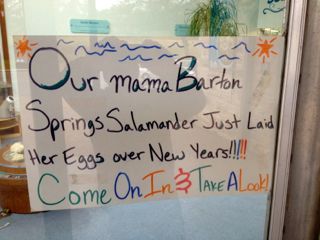 Our mama Barton
Springs Salamander Just Laid
Her Eggs over New Years!!!!!
Come On In & Take A Look!